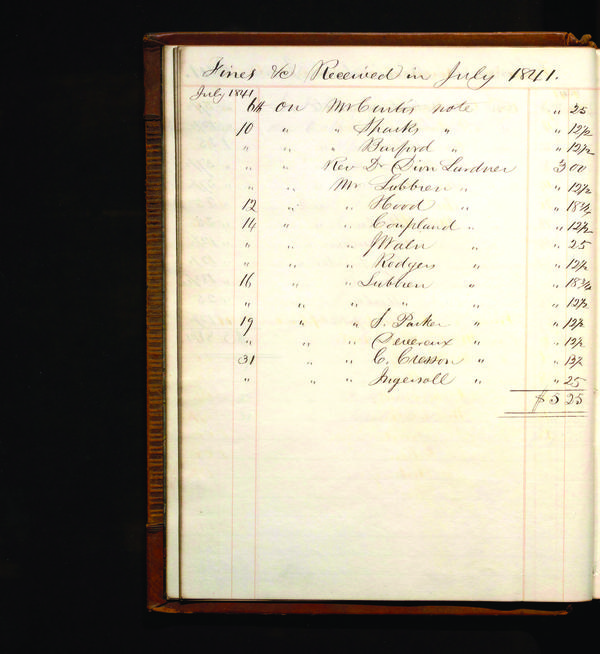 Fines &c Received in July 1841.
July 1841
6th on Mr Curtis note " 25
10 " " Sparks " " 12½
" " " Burford " " 12½
" " Rev Dr Dion Lardner 3 00
" " Mr Lubbren " " 12½
12 " " Hood " " 18¾
14 " " Coupland " " 12½
" " " J Waln " " 25
" " " Rodgers " " 12½
16 " " Lubbren " " 18¾
" " " " " " 12½
19 " " J. Parker " " 12½
" " " Devereux " " 13½
31 " " C. Cresson " " 13½
" " " Ingersoll " " 25
$ 5 25